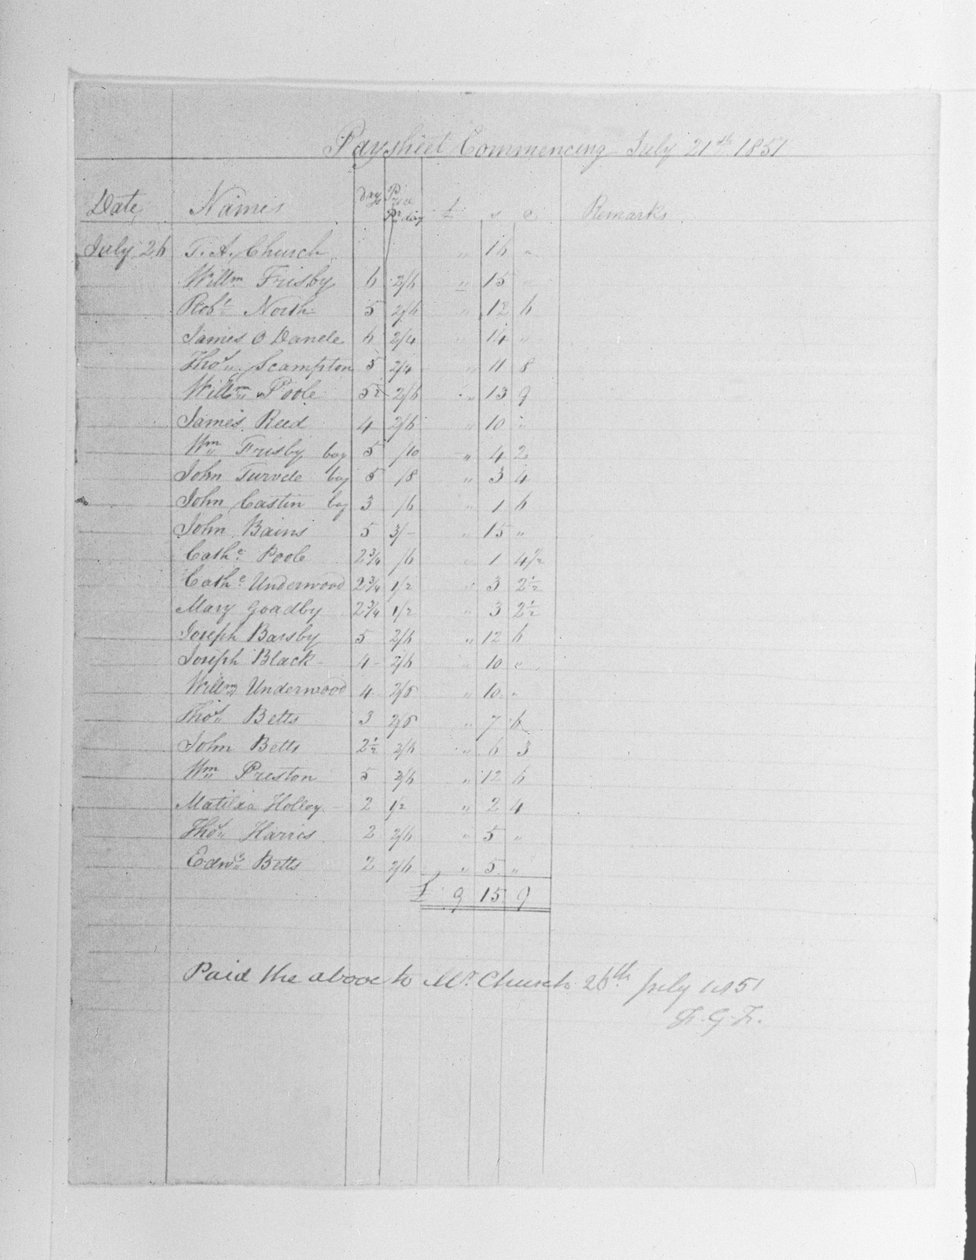 Paysheet Commencing July 21th 1851
Date Names Days Price Pr day £ s d Remarks
July 26 T. A. Church " 16 "
Willm Frisby 6 2/6 " 15 "
Robt North 5 2/6 " 12 6
James O Danele 6 2/4 " 14 "
Thos Scampton 5 2/4 " 11 8
Willm Poole 5½ 2/6 " 13 9
James Reed 4 2/6 " 10 "
Wm Frisby boy 5 /10 " 4 2
John Turvde boy 5 /8 " 3 4
John Castin boy 3 /6 " 1 6
John Bains 5 3/- " 15 "
Cathe Poole 2¾ /6 " 1 4½
Cathe Underwood 2¾ 1/2 " 3 2½
Mary Goadby 2¾ 1/2 " 3 2½
Joseph Barsby 5 2/6 " 12 6
Joseph Black 4 2/6 " 10 "
Willm Underwood 4 2/6 " 10 "
Thos Betts 3 2/6 " 7 6
John Betts 2½ 2/6 " 6 3
Wm Preston 5 2/6 " 12 6
Matilda Holloy 2 1/2 " 2 4
Thos Harris 2 2/6 " 5 "
Edwd Betts 2 2/6 " 5 "
£ 9 15 9
Paid the above to Mr Church 26th July 1851